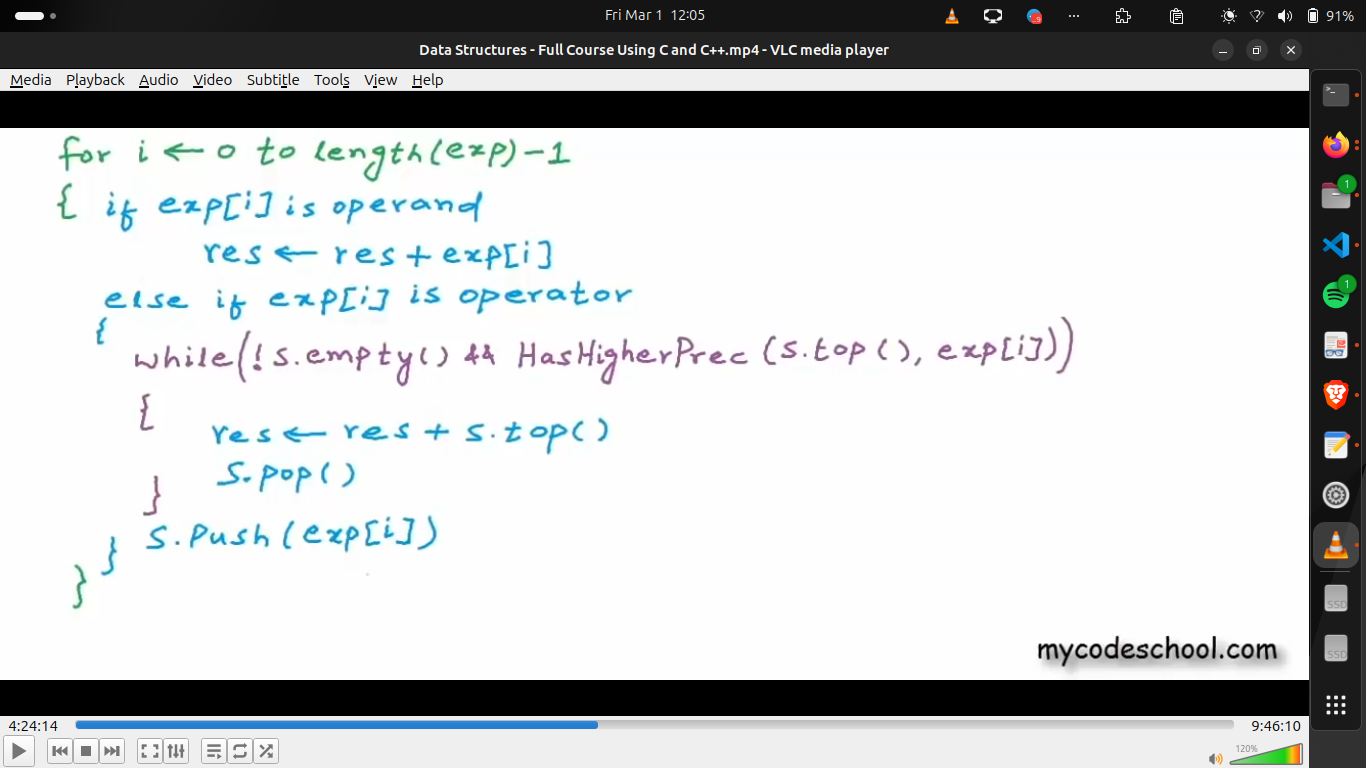 Fri Mar 1 12:05
91%
Data Structures - Full Course Using C and C++.mp4 - VLC media player
Media Playback Audio Video Subtitle Tools View Help
for i ← 0 to length(exp)-1
{ if exp[i] is operand
res ← res + exp[i]
else if exp[i] is operator
{
while(!s.empty() && HasHigherPrec(s.top(), exp[i]))
{
res ← res + s.top()
S.pop()
}
S.Push(exp[i])
}
}
mycodeschool.com
1
1
SSD
SSD
4:24:14
9:46:10
120%